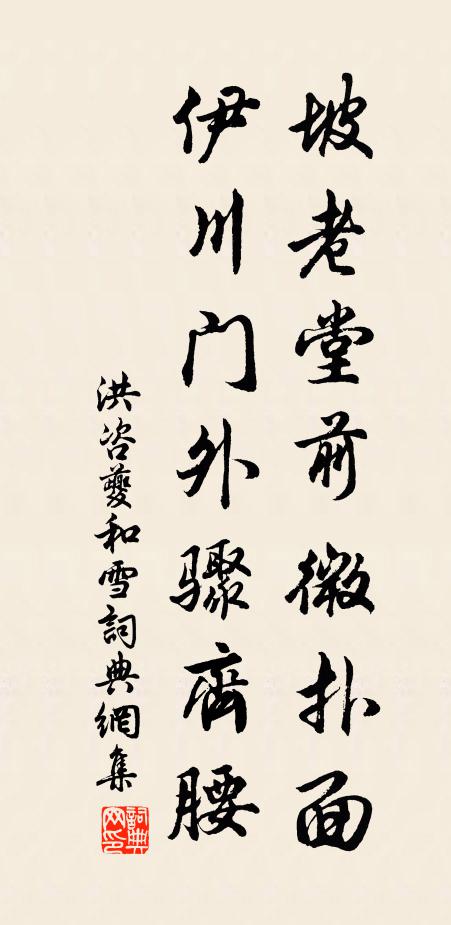 坡老堂前微扑面
伊川门外骤齊腰
洪咨夔和雪詞典網集
詞典网印